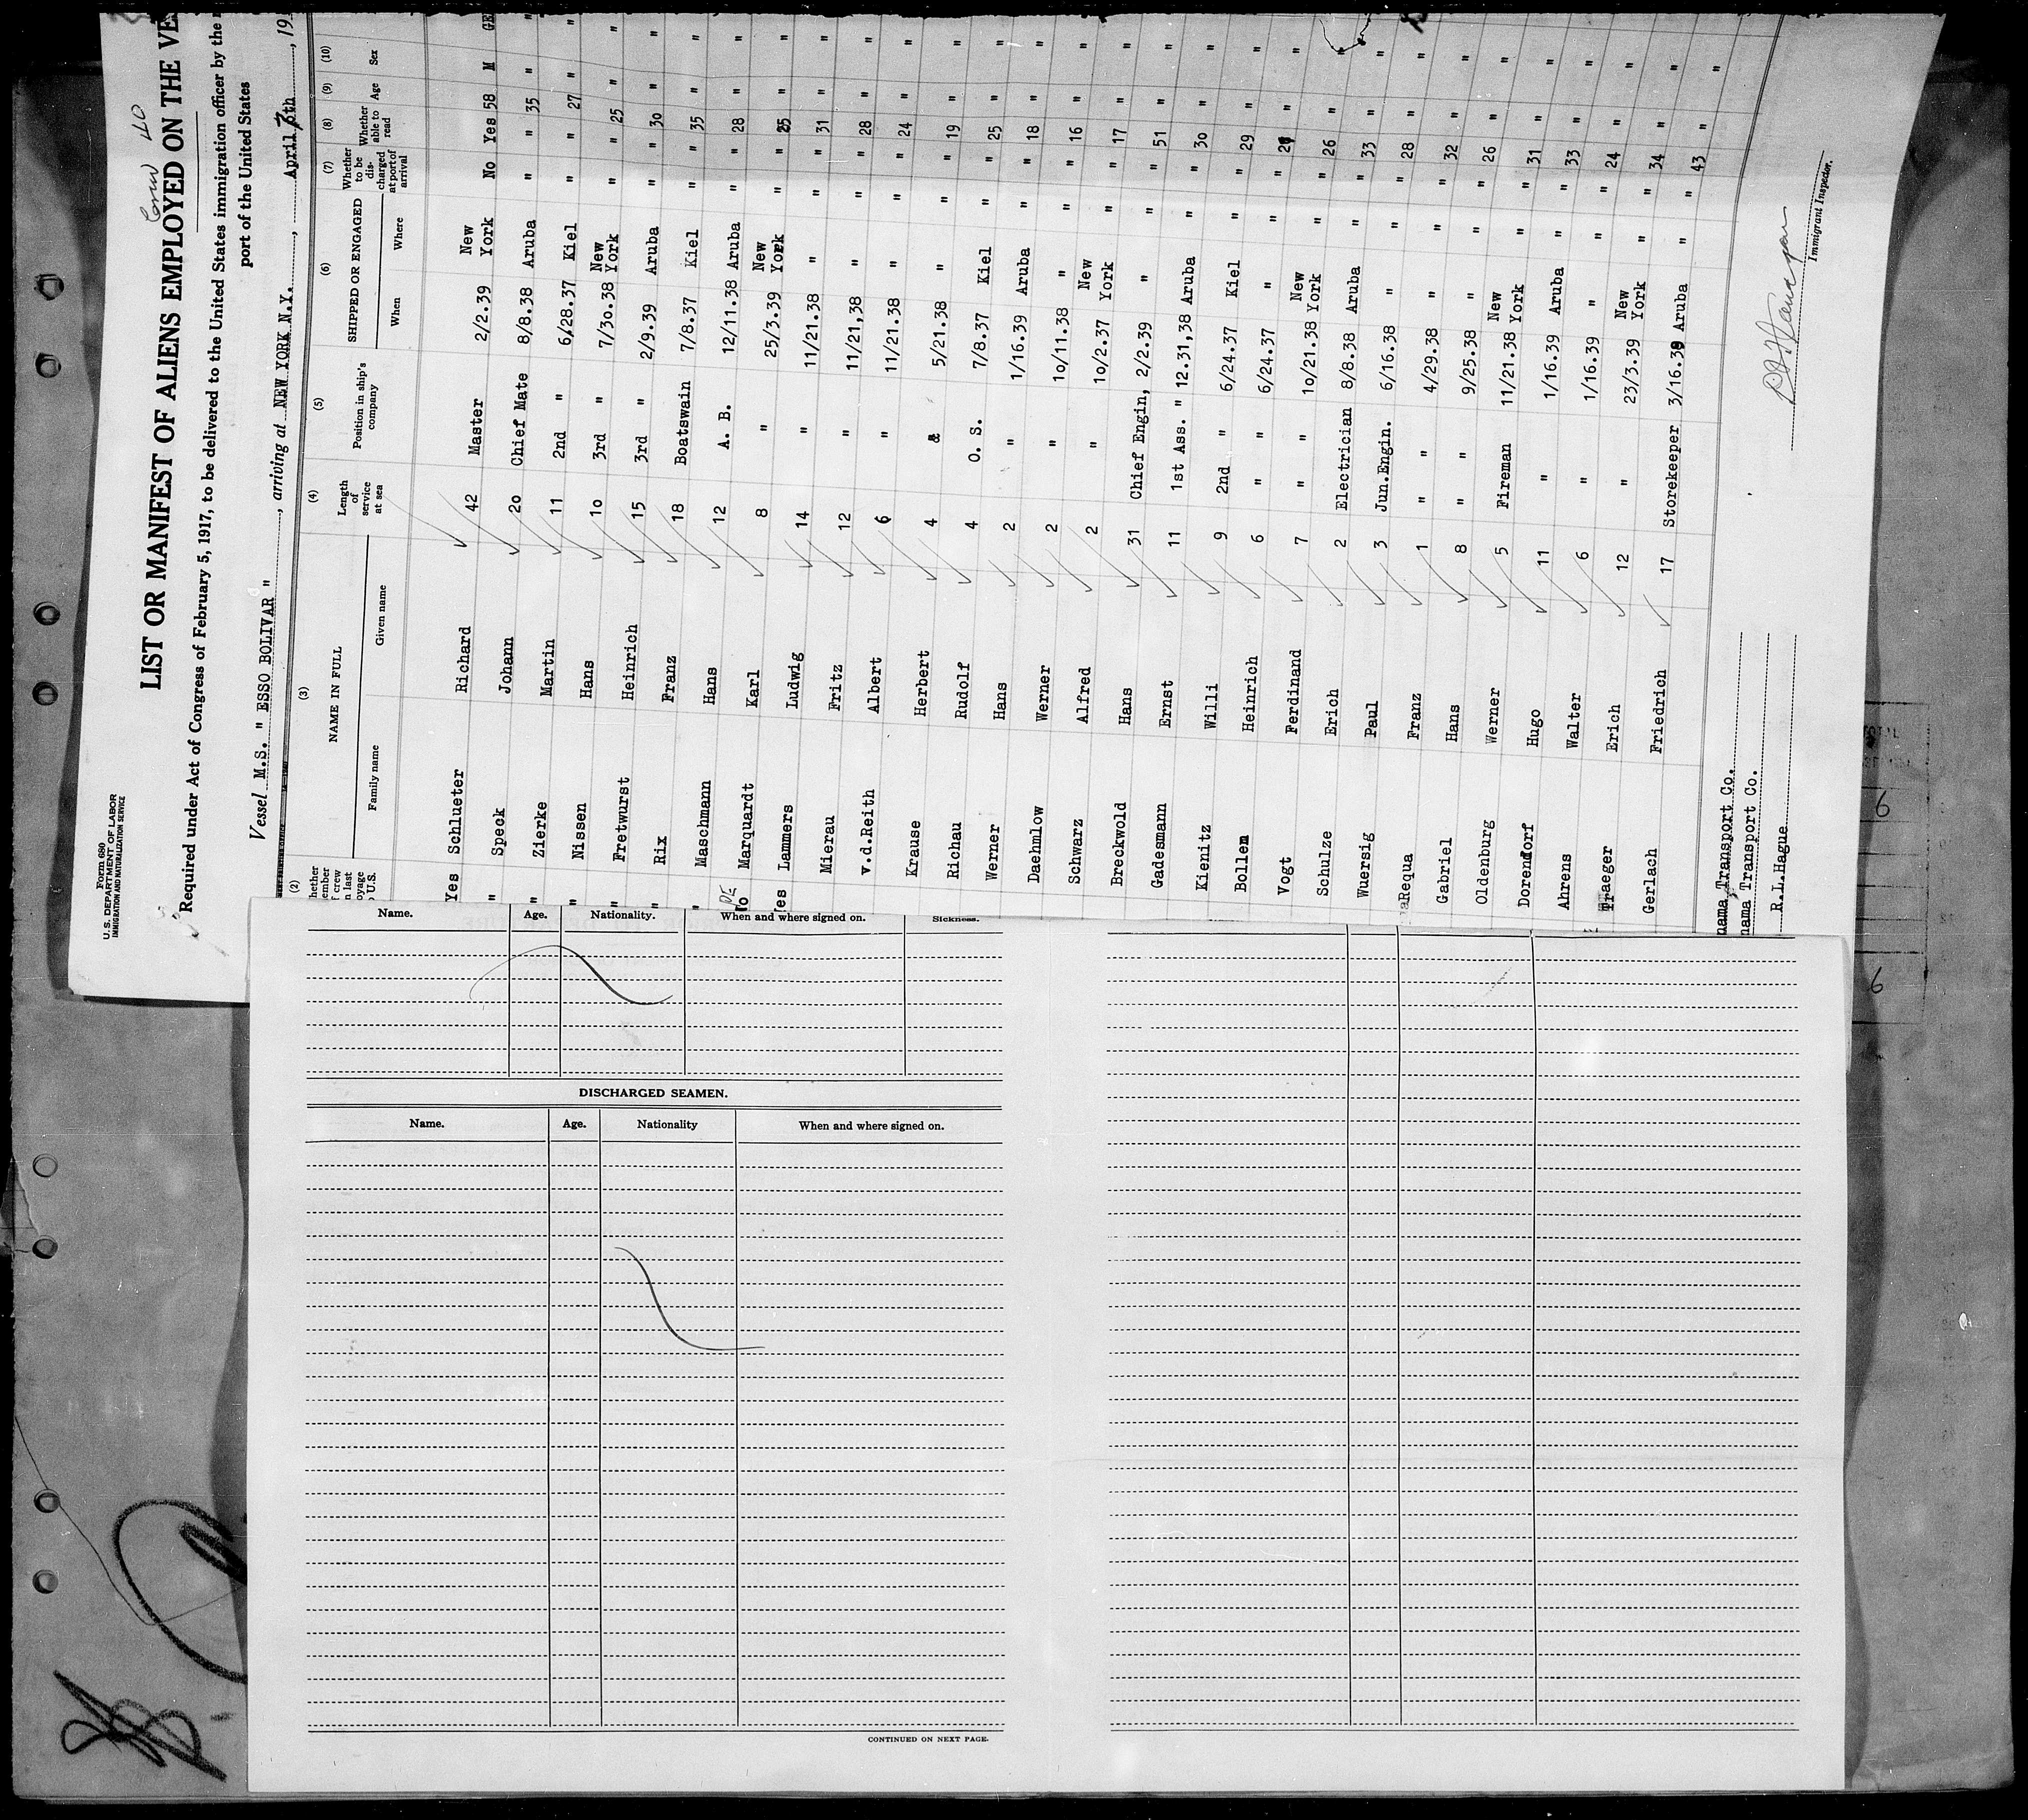 Form 680
U. S. DEPARTMENT OF LABOR
IMMIGRATION AND NATURALIZATION SERVICE
LIST OR MANIFEST OF ALIENS EMPLOYED ON THE VE
Required under Act of Congress of February 5, 1917, to be delivered to the United States immigration officer by the
port of the United States
Vessel M.S. " ESSO BOLIVAR " , arriving at NEW YORK N.Y. , April 7th , 19
(2) (3) (4) (5) (6) (7) (8) (9) (10)
NAME IN FULL Length of service at sea Position in ship's company SHIPPED OR ENGAGED Whether to be discharged at port of arrival Whether able to read Age Sex
Family name Given name When Where
Yes Schlueter Richard 42 Master 2/2.39 New York No Yes 58 M GE
" Speck Johann 20 Chief Mate 8/8.38 Aruba " " 35 " "
" Zierke Martin 11 2nd " 6/28.37 Kiel " " 27 " "
" Nissen Hans 10 3rd " 7/30.38 New York " " 25 " "
" Fretwurst Heinrich 15 3rd " 2/9.39 Aruba " " 30 " "
" Rix Franz 18 Boatswain 7/8.37 Kiel " " 35 " "
" Maschmann Hans 12 A. B. 12/11.38 Aruba " " 28 " "
No Marquardt Karl 8 " 25/3.39 New York " " 25 " "
Yes Lammers Ludwig 14 " 11/21.38 " " " 31 " "
Mierau Fritz 12 " 11/21,38 " " " 28 " "
v.d.Reith Albert 6 " 11/21.38 " " " 24 " "
Krause Herbert 4 & 5/21.38 " " " 19 " "
Richau Rudolf 4 O. S. 7/8.37 Kiel " " 25 " "
Werner Hans 2 " 1/16.39 Aruba " " 18 " "
Daehmlow Werner 2 " 10/11.38 " " " 16 " "
Schwarz Alfred 2 " 10/2.37 New York " " 17 " "
Breckwold Hans 31 Chief Engin, 2/2.39 " " " 51 " "
Gadesmann Ernst 11 1st Ass. " 12.31,38 Aruba " " 30 " "
Kienitz Willi 9 2nd " 6/24.37 Kiel " " 29 " "
Bollen Heinrich 6 " " 6/24.37 " " " " "
Vogt Ferdinand 7 " " 10/21.38 New York " " 26 " "
Schulze Erich 2 Electrician 8/8.38 Aruba " " 33 " "
Wuersig Paul 3 Jun.Engin. 6/16.38 " " " 28 " "
Requa Franz 1 " " 4/29.38 " " " 32 " "
Gabriel Hans 8 " " 9/25.38 " " " 26 " "
Oldenburg Werner 5 Fireman 11/21.38 New York " " 31 " "
Dorendorf Hugo 11 " 1/16.39 Aruba " " 33 " "
Ahrens Walter 6 " 1/16.39 " " " 24 " "
Traeger Erich 12 " 23/3.39 New York " " 34 " "
Gerlach Friedrich 17 Storekeeper 3/16.39 Aruba " " 43 " "
nama Transport Co.
nama Transport Co.
R.L.Hague
Immigrant Inspector.
Name. Age. Nationality. When and where signed on. Sickness.
DISCHARGED SEAMEN.
Name. Age. Nationality When and where signed on.
CONTINUED ON NEXT PAGE.
6
6